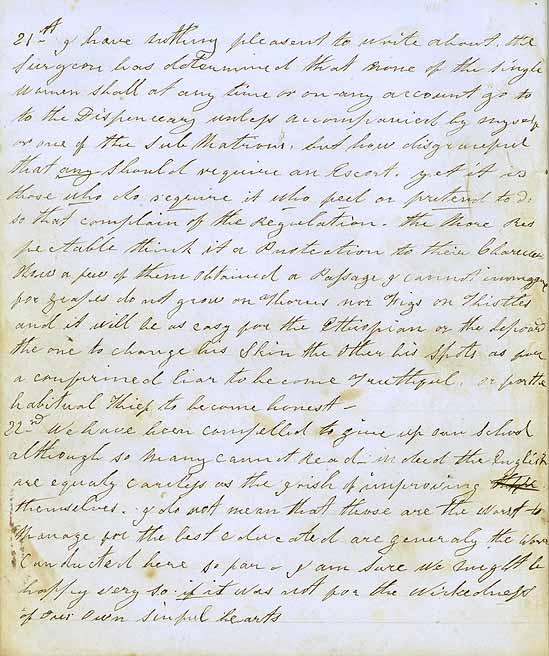 21st I have nothing pleasent to write about. the
Surgeon has determined that none of the single
Women shall at any time or on any account go to
to the Dispencary unless accompanied by myself
or one of the Sub Matrons, but how disgraceful
that any should require an Escort. yet it is
those who do require it who feel or pretend to do
so that complain of the Regulation - the More Res
pectable think it a Protection to their Charecter
How a few of them obtained a Passage I cannot immagine
for grapes do not grow on Thorns nor Figs on Thistles
and it will be as easy for the Ethiopian or the Lepoard
the one to change his Skin the Other his Spots as for
a confirmed liar to become Truthful. or for the
habitual Thief to become honest -
22nd We have been compelled to give up our School
although so many cannot Read - indeed the English
are equaly careless as the Irish of improving
themselves. I do not mean that those are the worst to
Manage for the best educated are generaly the worse
Conducted here so far - I am sure we might be
happy very so if it was not for the Wickedness
of Our Own sinful hearts